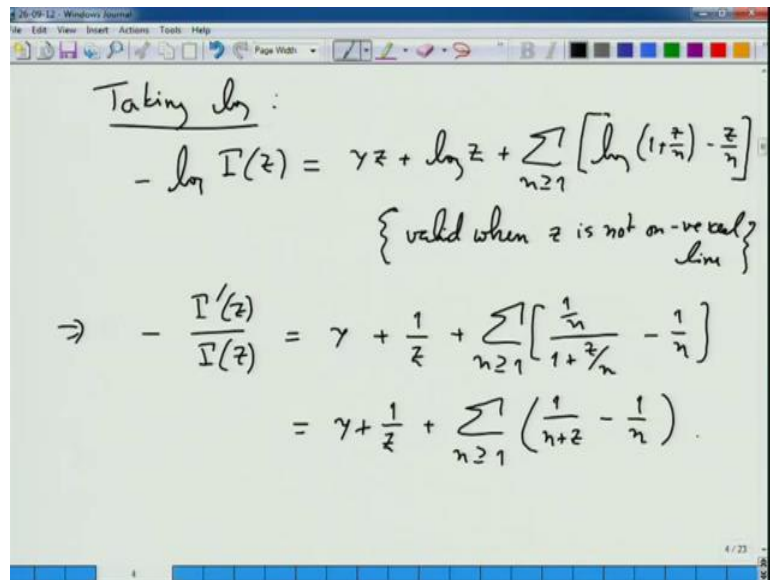 26-09-12 - Windows Journal
File Edit View Insert Actions Tools Help
Page Width
Taking log :
- log Γ(z) = γz + log z + ∑_{n≥1} [log (1+z/n) - z/n]
{ valid when z is not on -ve real
line }
⇒ - Γ'(z)/Γ(z) = γ + 1/z + ∑_{n≥1} [ (1/n)/(1+z/n) - 1/n ]
= γ + 1/z + ∑_{n≥1} ( 1/(n+z) - 1/n ).
4/23
4